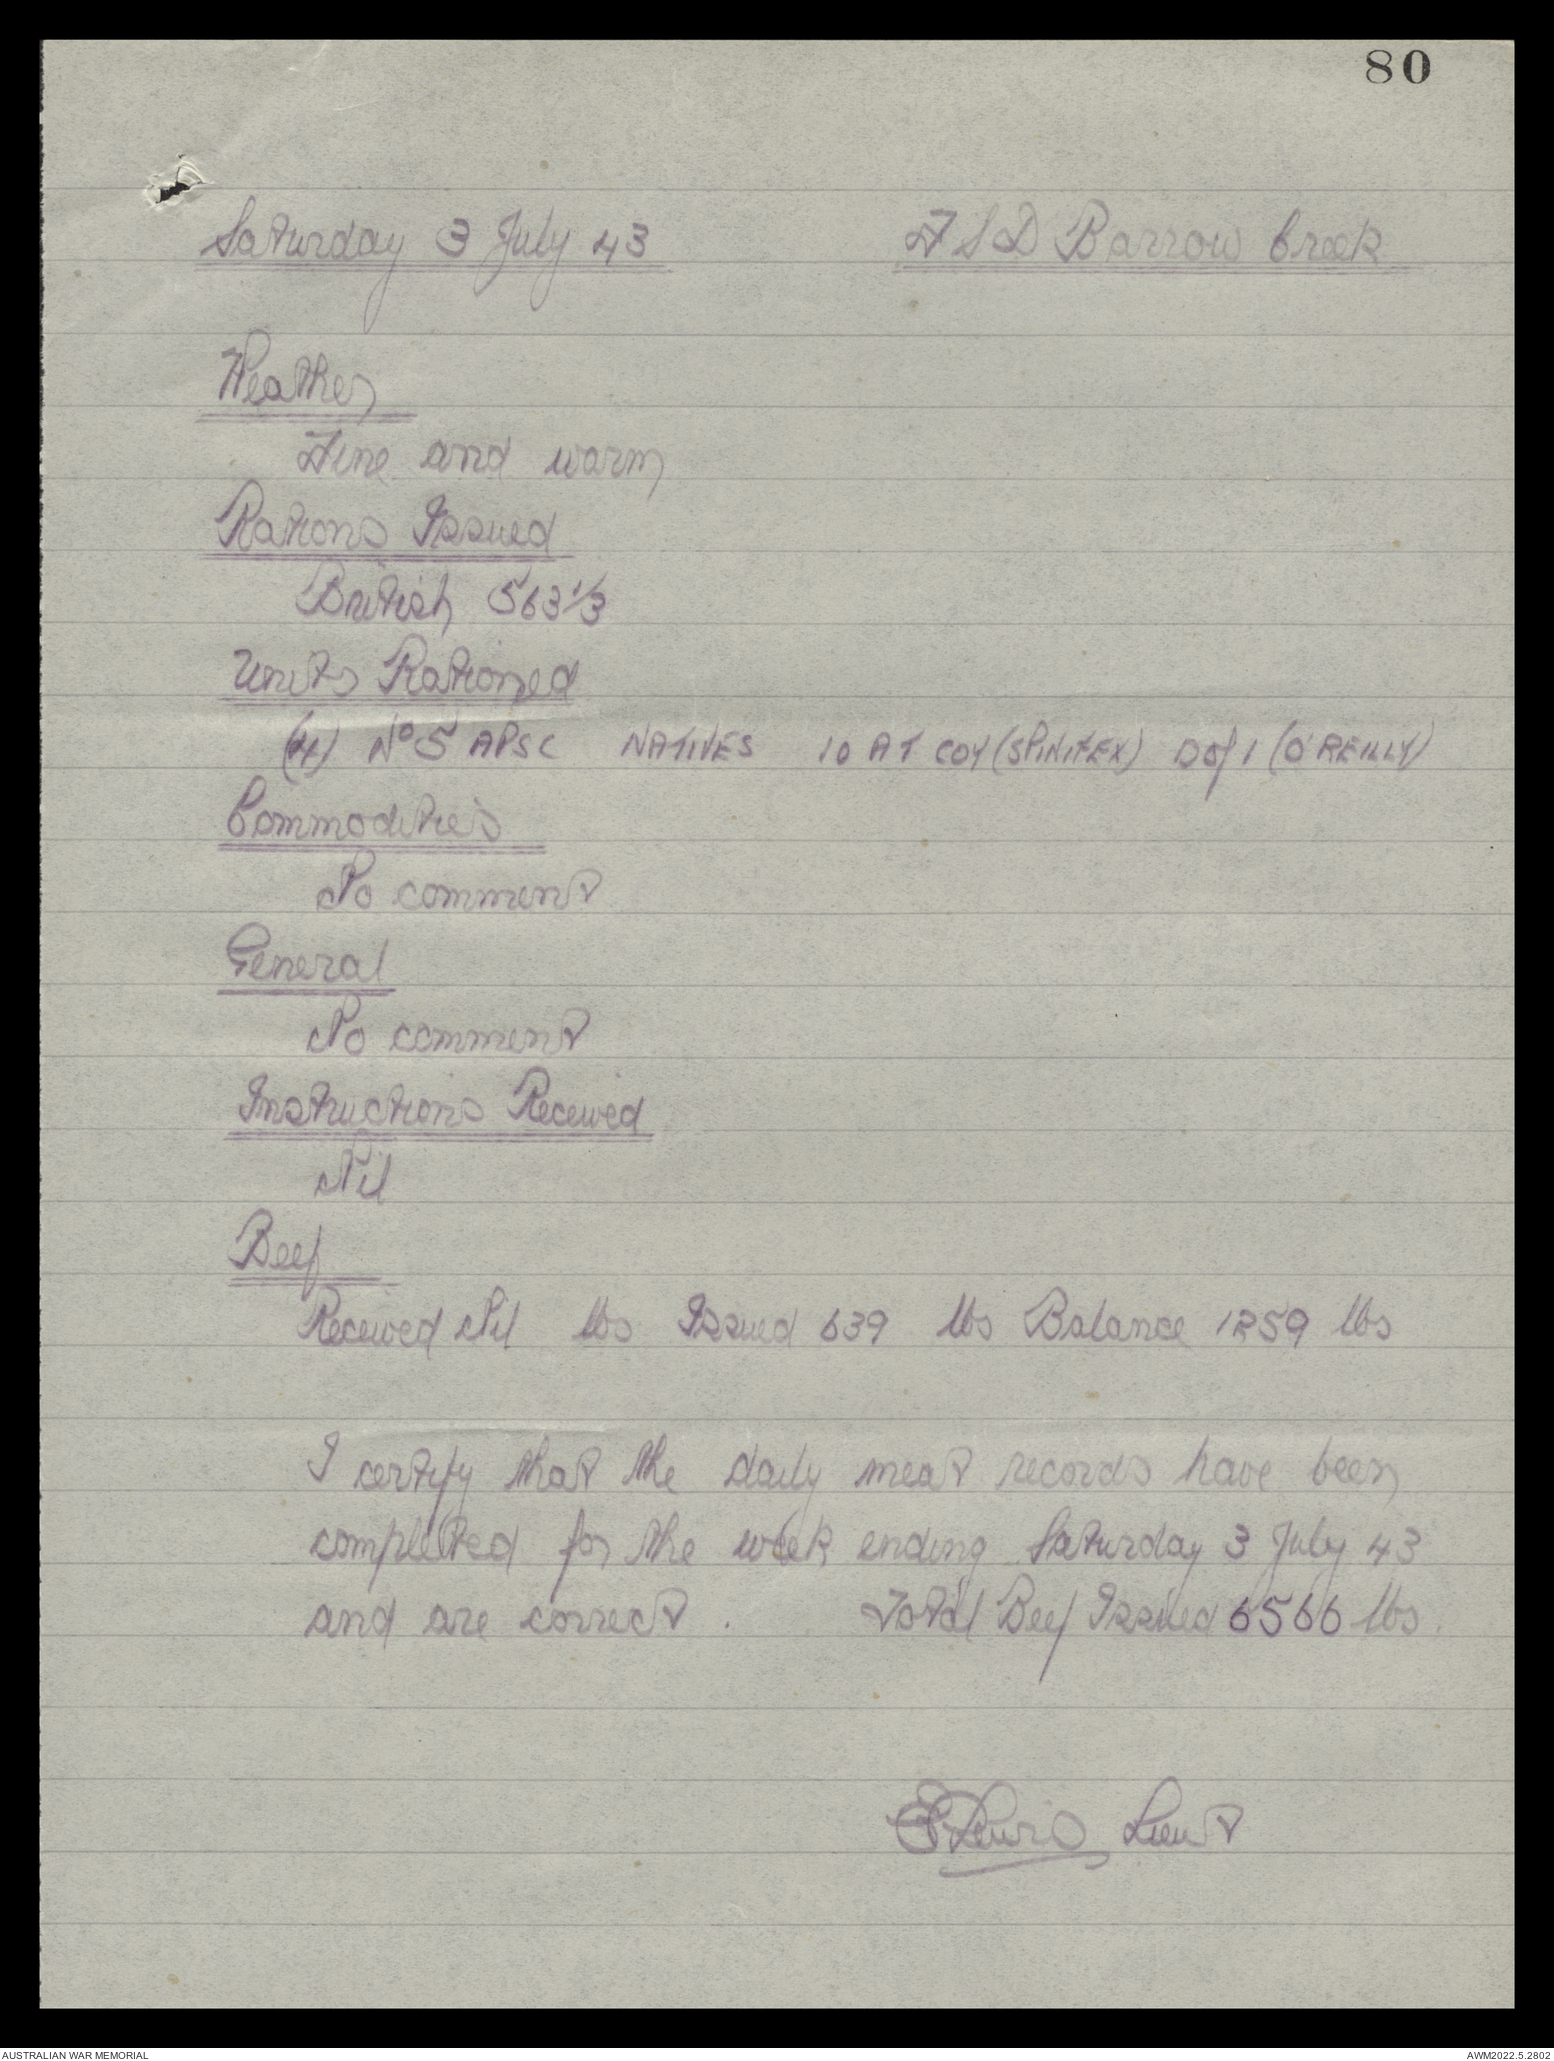 80
Saturday 3 July 43 FSD Barrow Creek
Weather
Fine and warm
Rations Issued
British 563 1/3
Units Rationed
(4) No 5 APSC NATIVES 10 AT COY (SPINIFEX) D of 1 (O'REILLY)
Commodities
No comment
General
No comment
Instructions Received
Nil
Beef
Received Nil lbs Issued 639 lbs Balance 1259 lbs
I certify that the daily meat records have been
completed for the week ending Saturday 3 July 43
and are correct. Total Beef Issued 6566 lbs.
Lewis Lieut
AUSTRALIAN WAR MEMORIAL AWM2022.5.2802